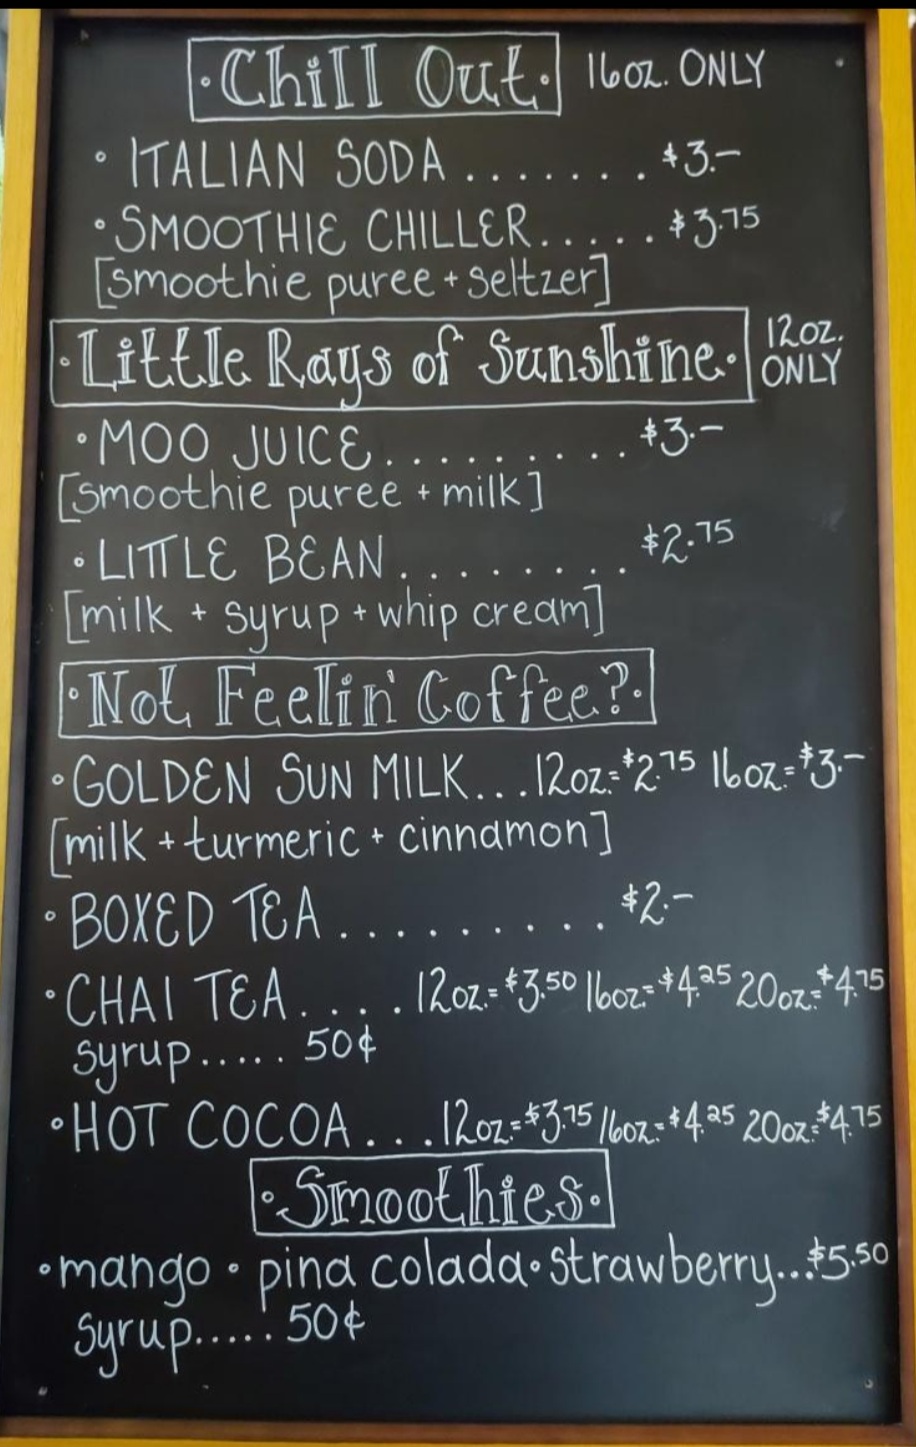 ·Chill Out· 16oz. ONLY
• ITALIAN SODA ....... $3.–
• SMOOTHIE CHILLER..... $3.75
[smoothie puree + seltzer]
·Little Rays of Sunshine· 12oz. ONLY
• MOO JUICE.......... $3.–
[smoothie puree + milk]
• LITTLE BEAN ......... $2.75
[milk + syrup + whip cream]
·Not Feelin' Coffee?·
• GOLDEN SUN MILK...12oz.=$2.75 16oz.=$3.–
[milk + turmeric + cinnamon]
• BOXED TEA .......... $2.–
• CHAI TEA.....12oz.=$3.50 16oz.=$4.25 20oz.=$4.75
syrup..... 50¢
• HOT COCOA ....12oz.=$3.75 16oz.=$4.25 20oz.=$4.75
·Smoothies·
• mango • pina colada • strawberry...$5.50
syrup..... 50¢